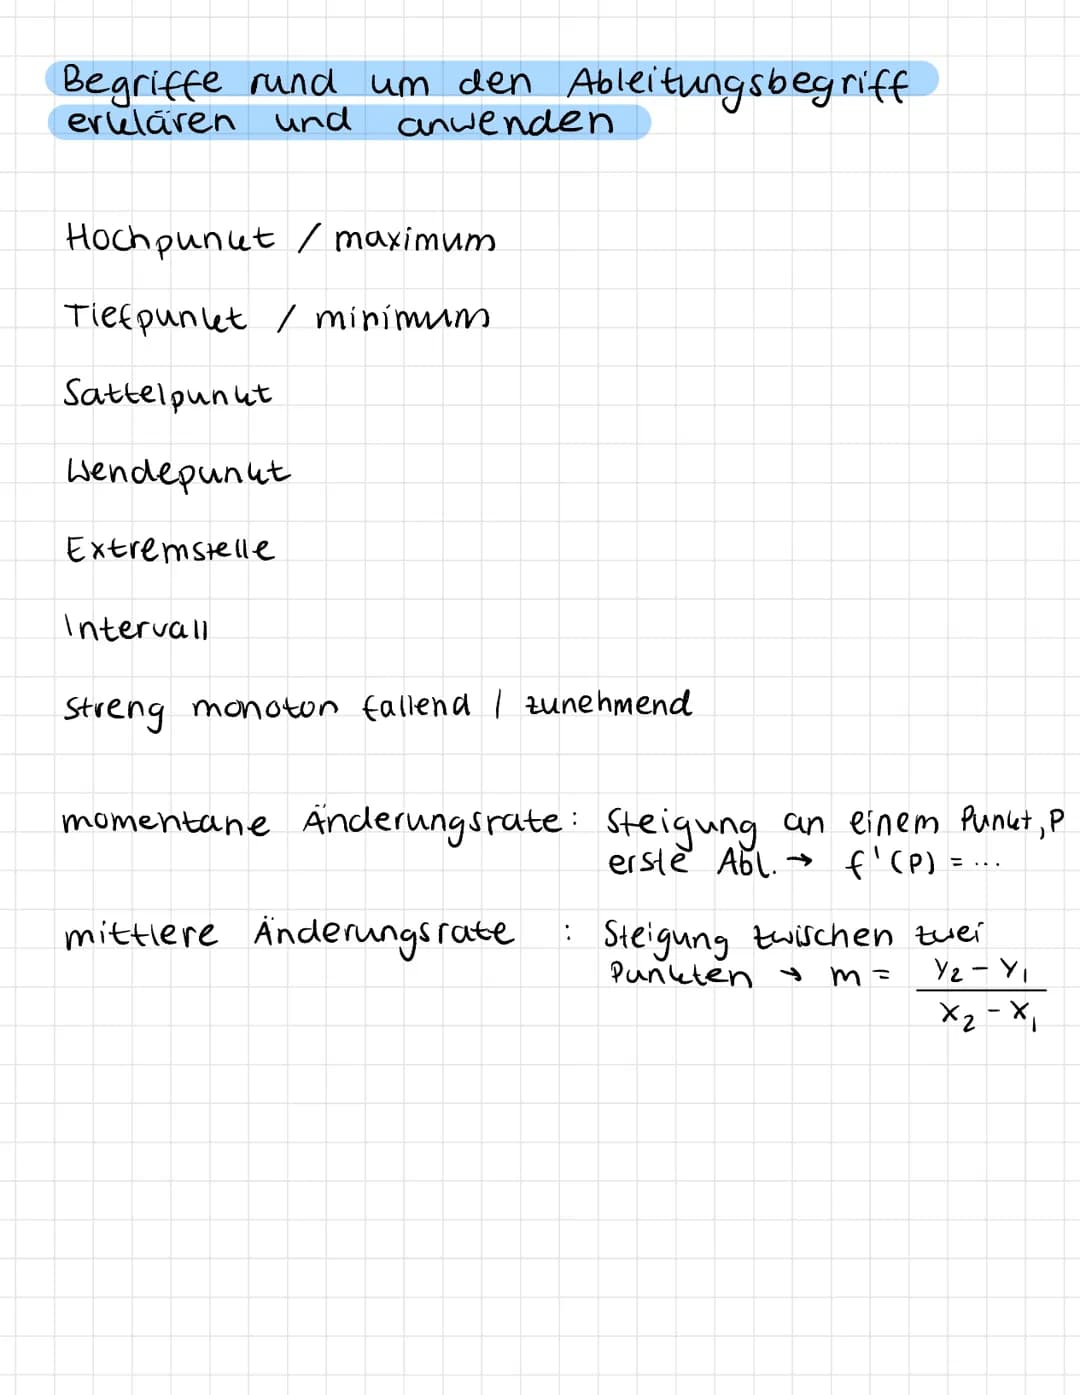 Begriffe rund um den Ableitungsbegriff
erklären und anwenden
Hochpunkt / maximum
Tiefpunkt / minimum
Sattelpunkt
Wendepunkt
Extremstelle
Intervall
streng monoton fallend / zunehmend
momentane Änderungsrate: Steigung an einem Punkt, P
erste Abl. → f'(P) = ...
mittlere Änderungsrate : Steigung zwischen zwei
Punkten → m = y₂ - y₁
x₂ - x₁